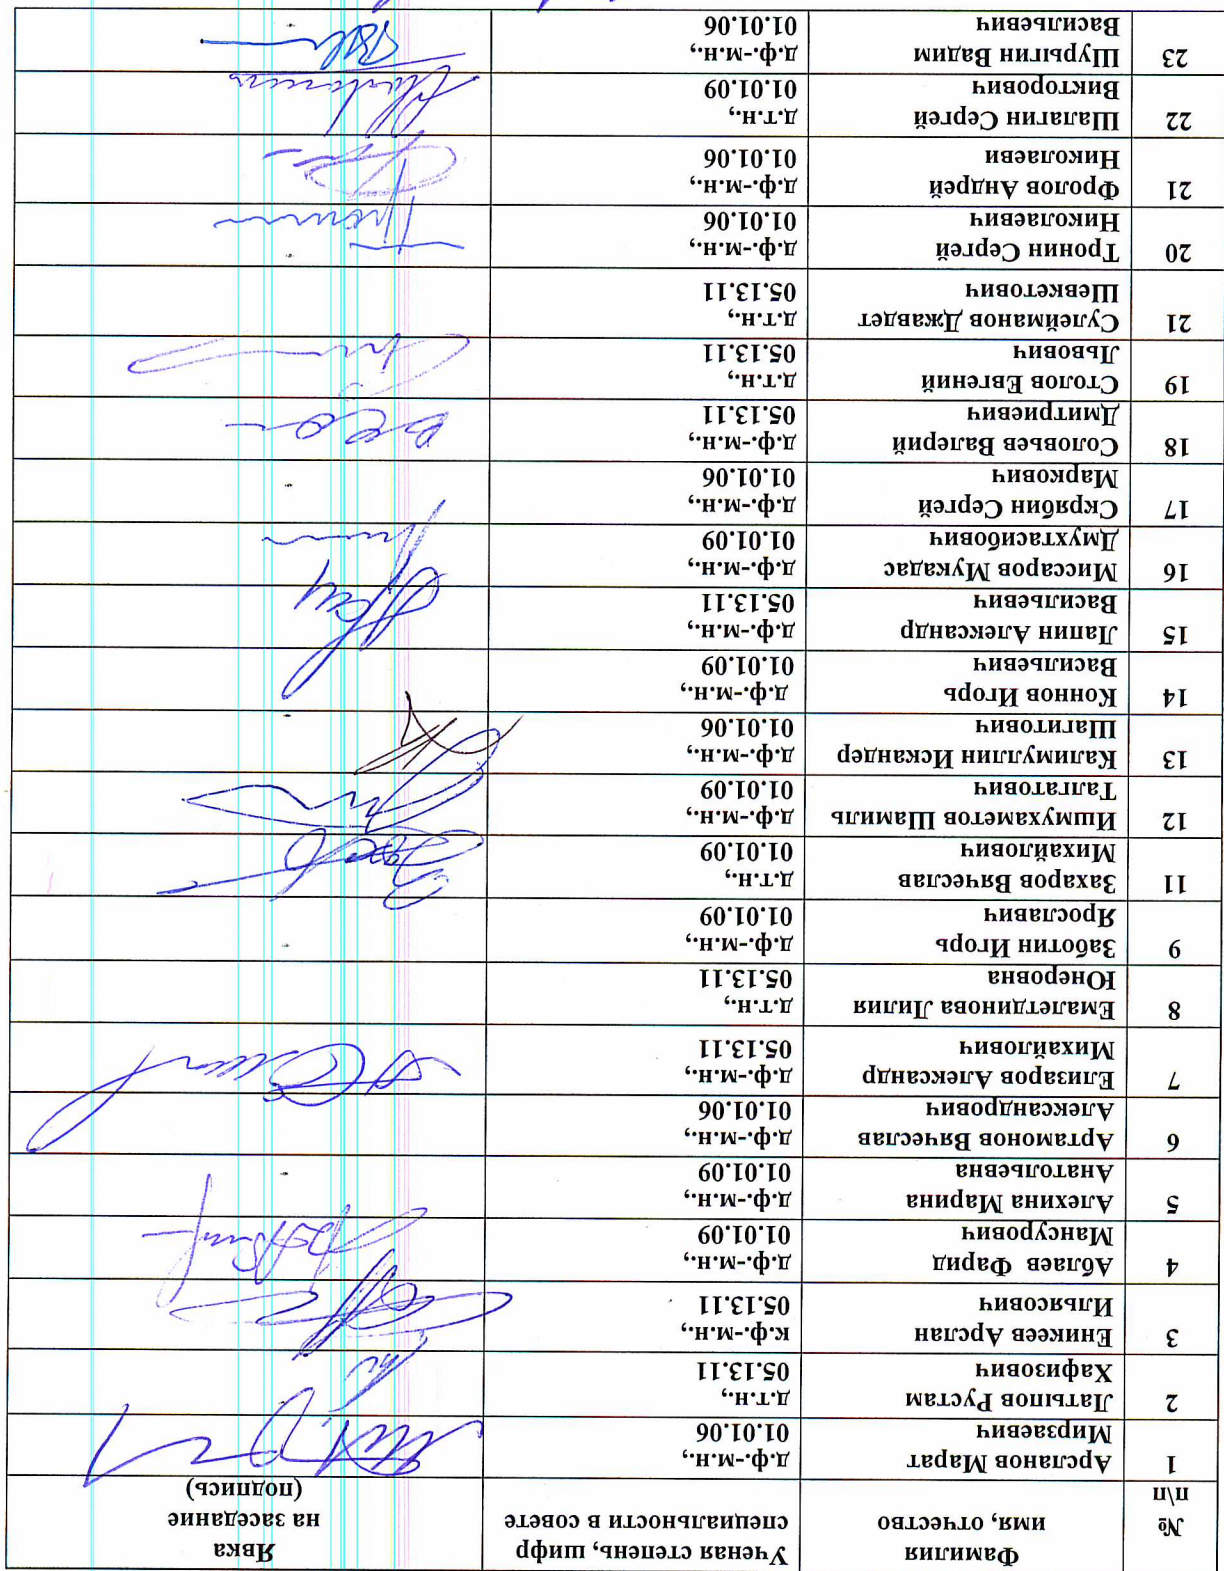 № п\п
Фамилия
имя, отчество
Ученая степень, шифр
специальности в совете
Явка
на заседание
(подпись)
1
Арсланов Марат
Мирзаевич
д.ф.-м.н.,
01.01.06
2
Латыпов Рустам
Хафизович
д.т.н.,
05.13.11
3
Еникеев Арслан
Ильясович
к.ф.-м.н.,
05.13.11
4
Аблаев Фарид
Мансурович
д.ф.-м.н.,
01.01.09
5
Алехина Марина
Анатольевна
д.ф.-м.н.,
01.01.09
6
Артамонов Вячеслав
Александрович
д.ф.-м.н.,
01.01.06
7
Елизаров Александр
Михайлович
д.ф.-м.н.,
05.13.11
8
Емалетдинова Лилия
Юнеровна
д.т.н.,
05.13.11
9
Заботин Игорь
Ярославич
д.ф.-м.н.,
01.01.09
11
Захаров Вячеслав
Михайлович
д.т.н.,
01.01.09
12
Ишмухаметов Шамиль
Талгатович
д.ф.-м.н.,
01.01.09
13
Калимуллин Искандер
Шагитович
д.ф.-м.н.,
01.01.06
14
Коннов Игорь
Васильевич
д.ф.-м.н.,
01.01.09
15
Лапин Александр
Васильевич
д.ф.-м.н.,
05.13.11
16
Миссаров Мукадас
Дмухтасибович
д.ф.-м.н.,
01.01.09
17
Скрябин Сергей
Маркович
д.ф.-м.н.,
01.01.06
18
Соловьев Валерий
Дмитриевич
д.ф.-м.н.,
05.13.11
19
Столов Евгений
Львович
д.т.н.,
05.13.11
21
Сулейманов Джавдет
Шевкетович
д.т.н.,
05.13.11
20
Тронин Сергей
Николаевич
д.ф.-м.н.,
01.01.06
21
Фролов Андрей
Николаеви
д.ф.-м.н.,
01.01.06
22
Шалагин Сергей
Викторович
д.т.н.,
01.01.09
23
Шурыгин Вадим
Васильевич
д.ф.-м.н.,
01.01.06